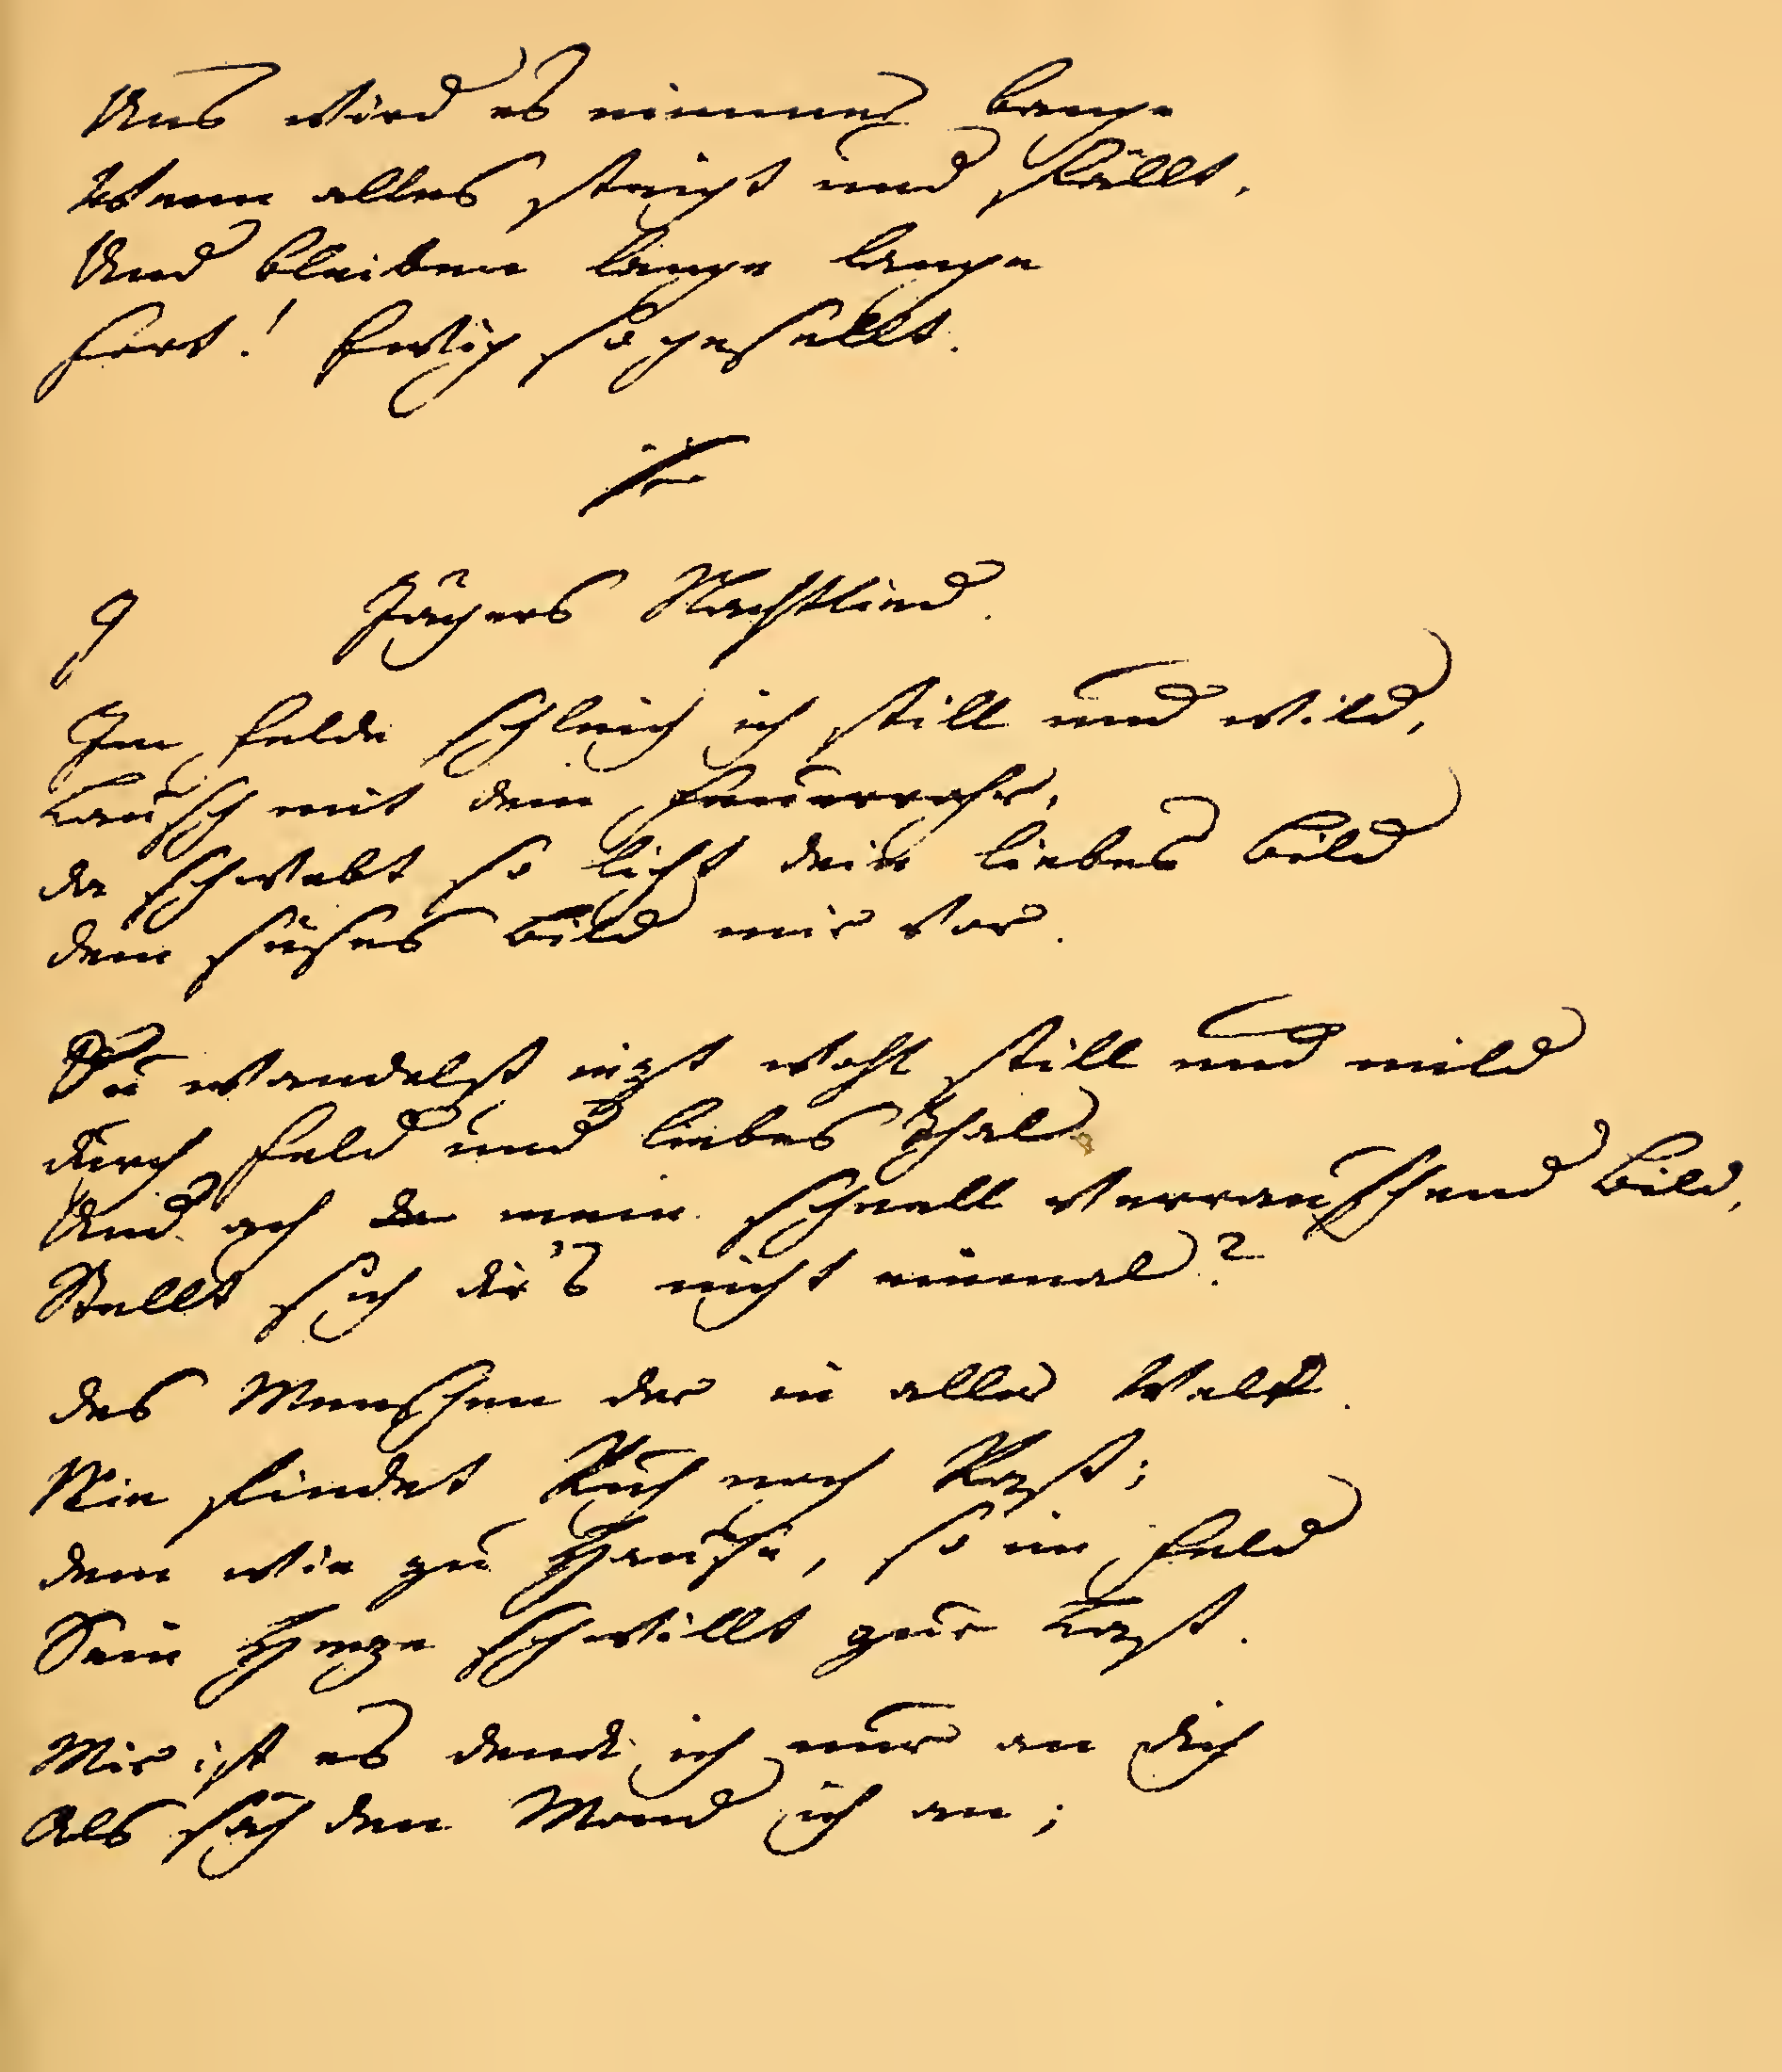 Uns wird es nimmer bange
Wenn alles steigt und fällt,
Und bleiben lange lange
fort! Ewig so gesellt.
9 Jägers Nachtlied.
Im Felde schleich ich still und wild,
Lausch mit dem Feuerrohr,
da schwebt so licht dein liebes Bild
dein süses Bild mir vor.
Du wandelst iezt wohl still und mild
durch Feld und liebes Thal
Und ach mein schnell verrauschend Bild,
Stellt sich dir's nicht einmal?
des Menschen der in aller Welt.
Nie findet Ruh noch Rast;
dem wie zu Hause, so im Feld
Sein Herze schwillt zur Last.
Mir ist es denck ich nur an dich
Als säh den Mond ich an;